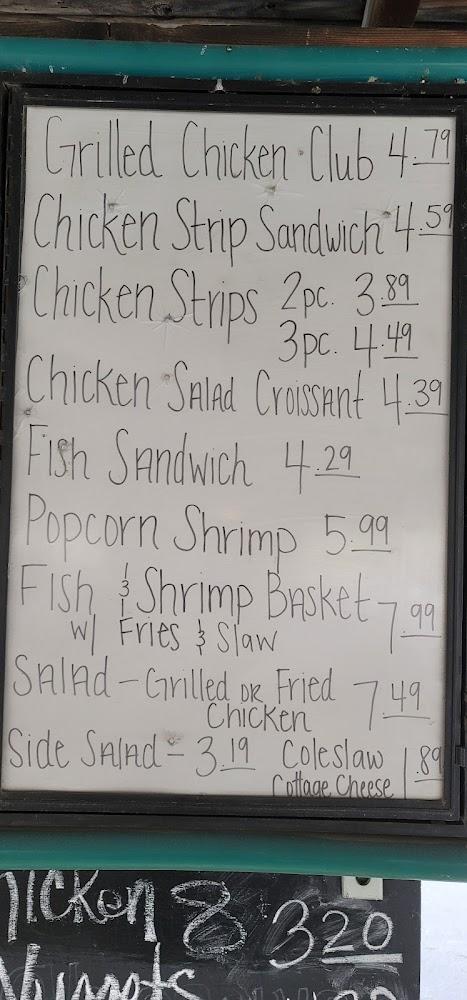 Grilled Chicken Club 4.79
Chicken Strip Sandwich 4.59
Chicken Strips 2pc. 3.89
3pc. 4.49
Chicken Salad Croissant 4.39
Fish Sandwich 4.29
Popcorn Shrimp 5.99
Fish & Shrimp Basket 7.99
w/ Fries & Slaw
Salad - Grilled or Fried 7.49
Chicken
Side Salad - 3.19 Coleslaw 1.89
Cottage Cheese
hicken 8 320
Nuggets